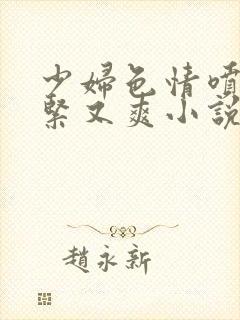 少婦色情噴
緊又爽小說
趙永新